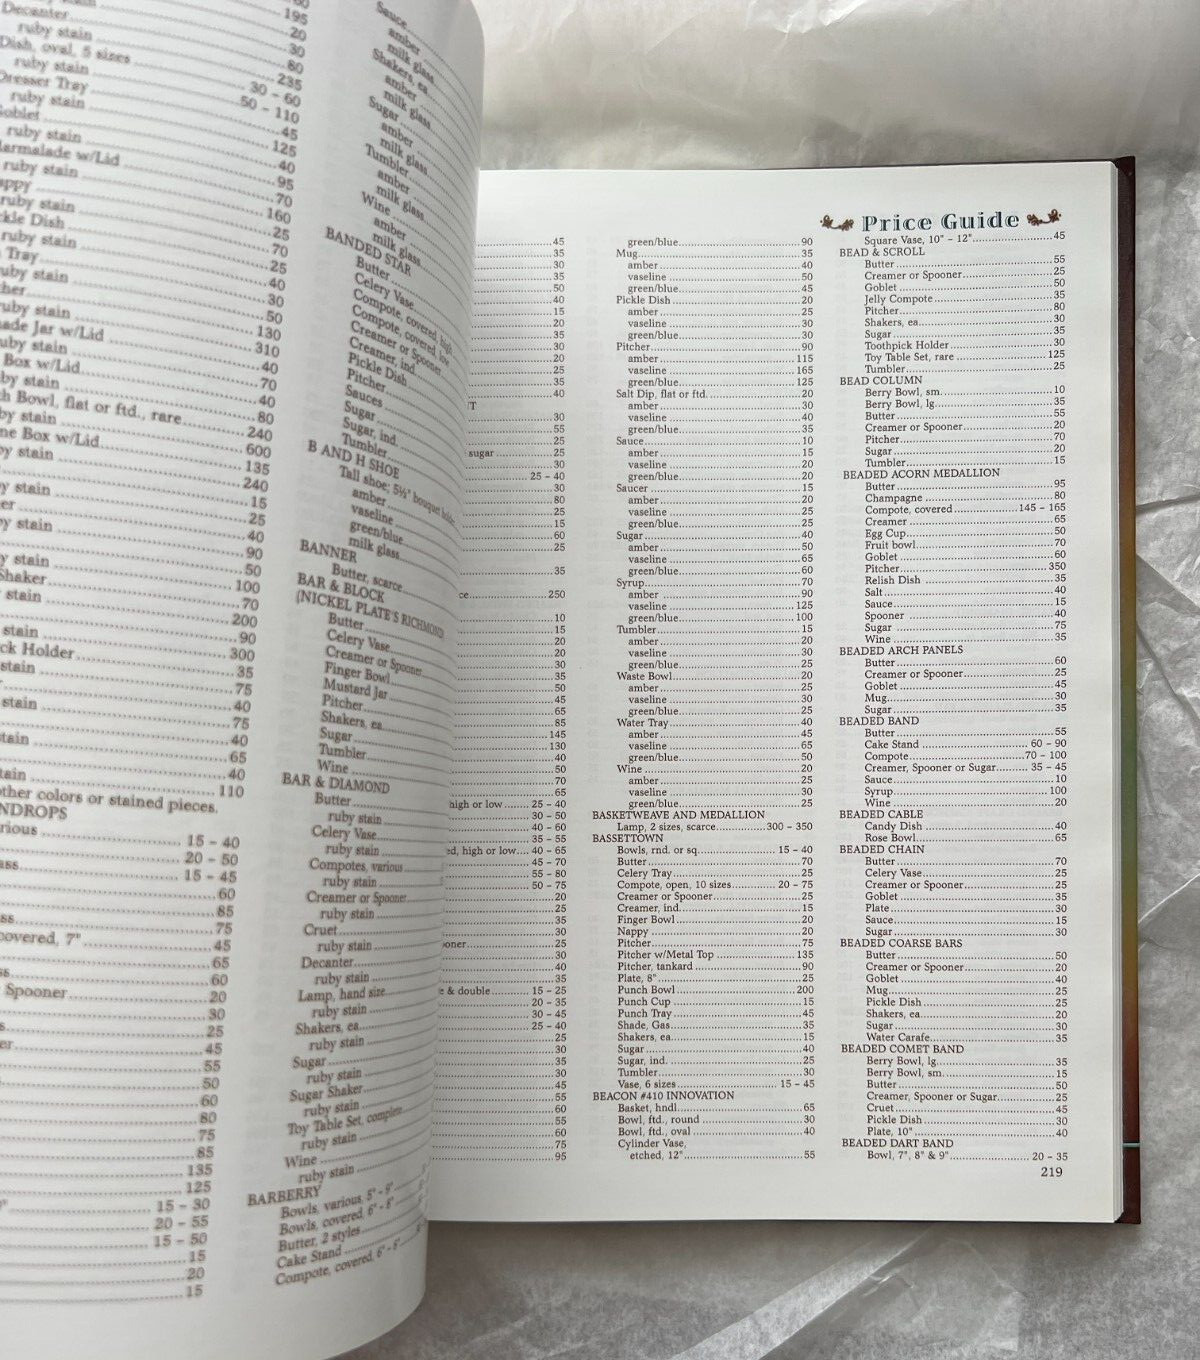 Decanter 195
ruby stain 20
Dish, oval, 5 sizes 30
ruby stain 80
Dresser Tray 235
ruby stain 30 - 60
50 - 110
45
ruby stain 125
w/Lid 40
ruby stain 95
70
ruby stain 160
Dish 25
ruby stain 70
Tray 25
ruby stain 40
30
ruby stain 50
Jar w/Lid 130
ruby stain 310
Box w/Lid 40
stain 70
Bowl, flat or ftd., rare 40
stain 80
Box w/Lid 240
stain 600
135
stain 240
15
stain 25
40
stain 90
Shaker 50
stain 100
70
stain 200
Holder 90
stain 300
35
stain 75
40
75
40
65
40
110
other colors or stained pieces.
15 - 40
20 - 50
15 - 45
60
85
75
covered, 7" 45
65
60
Spooner 20
30
25
45
55
50
60
80
75
85
135
125
15 - 30
20 - 55
15 - 50
15
20
15
Sauce
amber
milk glass
Shakers, ea.
amber
milk glass
Sugar
amber
milk glass
Tumbler
amber
milk glass
Wine
amber
milk glass
BANDED STAR
Butter
Celery Vase
Compote, covered, high
Compote, covered, low
Creamer or Spooner
Creamer, ind.
Pickle Dish
Pitcher
Sauces
Sugar
Sugar, ind.
Tumbler
B AND H SHOE
Tall shoe; 5½" bouquet holder
amber
vaseline
green/blue
milk glass
BANNER
Butter, scarce
BAR & BLOCK
(NICKEL PLATE'S RICHMOND)
Butter
Celery Vase
Creamer or Spooner
Finger Bowl
Mustard Jar
Pitcher
Shakers, ea.
Sugar
Tumbler
Wine
BAR & DIAMOND
Butter
ruby stain
Celery Vase
ruby stain
Compotes, various
ruby stain
Creamer or Spooner
ruby stain
Cruet
ruby stain
Decanter
ruby stain
Lamp, hand size
ruby stain
Shakers, ea.
ruby stain
Sugar
ruby stain
Sugar Shaker
ruby stain
Toy Table Set, complete
ruby stain
Wine
ruby stain
BARBERRY
Bowls, various, 5" - 9"
Bowls, covered, 6" - 8"
Butter, 2 styles
Cake Stand
Compote, covered, 6" - 8"
45
35
30
35
50
40
15
20
35
30
20
25
35
40
30
55
25
sugar 25
30
25 - 40
30
80
25
15
60
25
35
250
10
15
20
20
30
35
50
45
65
85
145
130
40
50
70
65
high or low 25 - 40
30 - 50
40 - 60
35 - 55
high or low 40 - 65
45 - 70
55 - 80
50 - 75
20
25
35
25
30
40
35
& double 15 - 25
20 - 35
30 - 45
25 - 40
25
30
35
30
45
55
60
55
60
75
95
green/blue 90
Mug 35
amber 40
vaseline 50
green/blue 45
Pickle Dish 20
amber 25
vaseline 30
green/blue 30
Pitcher 90
amber 115
vaseline 165
green/blue 125
Salt Dip, flat or ftd. 20
amber 30
vaseline 40
green/blue 35
Sauce 10
amber 15
vaseline 20
green/blue 20
Saucer 15
amber 20
vaseline 25
green/blue 25
Sugar 40
amber 50
vaseline 65
green/blue 60
Syrup 70
amber 90
vaseline 125
green/blue 100
Tumbler 15
amber 20
vaseline 30
green/blue 25
Waste Bowl 20
amber 25
vaseline 30
green/blue 25
Water Tray 40
amber 45
vaseline 65
green/blue 50
Wine 20
amber 25
vaseline 30
green/blue 25
BASKETWEAVE AND MEDALLION
Lamp, 2 sizes, scarce 300 - 350
BASSETTOWN
Bowls, rnd. or sq. 15 - 40
Butter 70
Celery Tray 25
Compote, open, 10 sizes 20 - 75
Creamer or Spooner 25
Creamer, ind. 15
Finger Bowl 20
Nappy 20
Pitcher 75
Pitcher w/Metal Top 135
Pitcher, tankard 90
Plate, 8" 25
Punch Bowl 200
Punch Cup 15
Punch Tray 45
Shade, Gas 35
Shakers, ea. 15
Sugar 40
Sugar, ind. 25
Tumbler 30
Vase, 6 sizes 15 - 45
BEACON #410 INNOVATION
Basket, hndl 65
Bowl, ftd., round 30
Bowl, ftd., oval 40
Cylinder Vase,
etched, 12" 55
Price Guide
Square Vase, 10" - 12" 45
BEAD & SCROLL
Butter 55
Creamer or Spooner 25
Goblet 50
Jelly Compote 35
Pitcher 80
Shakers, ea. 30
Sugar 35
Toothpick Holder 30
Toy Table Set, rare 125
Tumbler 25
BEAD COLUMN
Berry Bowl, sm. 10
Berry Bowl, lg. 35
Butter 55
Creamer or Spooner 20
Pitcher 70
Sugar 20
Tumbler 15
BEADED ACORN MEDALLION
Butter 95
Champagne 80
Compote, covered 145 - 165
Creamer 65
Egg Cup 50
Fruit bowl 70
Goblet 60
Pitcher 350
Relish Dish 35
Salt 40
Sauce 15
Spooner 40
Sugar 75
Wine 35
BEADED ARCH PANELS
Butter 60
Creamer or Spooner 25
Goblet 45
Mug 30
Sugar 35
BEADED BAND
Butter 55
Cake Stand 60 - 90
Compote 70 - 100
Creamer, Spooner or Sugar 35 - 45
Sauce 10
Syrup 100
Wine 20
BEADED CABLE
Candy Dish 40
Rose Bowl 65
BEADED CHAIN
Butter 70
Celery Vase 25
Creamer or Spooner 25
Goblet 35
Plate 30
Sauce 15
Sugar 30
BEADED COARSE BARS
Butter 50
Creamer or Spooner 20
Goblet 40
Mug 25
Pickle Dish 25
Shakers, ea. 20
Sugar 30
Water Carafe 35
BEADED COMET BAND
Berry Bowl, lg. 35
Berry Bowl, sm. 15
Butter 50
Creamer, Spooner or Sugar 25
Cruet 45
Pickle Dish 30
Plate, 10" 40
BEADED DART BAND
Bowl, 7", 8" & 9" 20 - 35
219